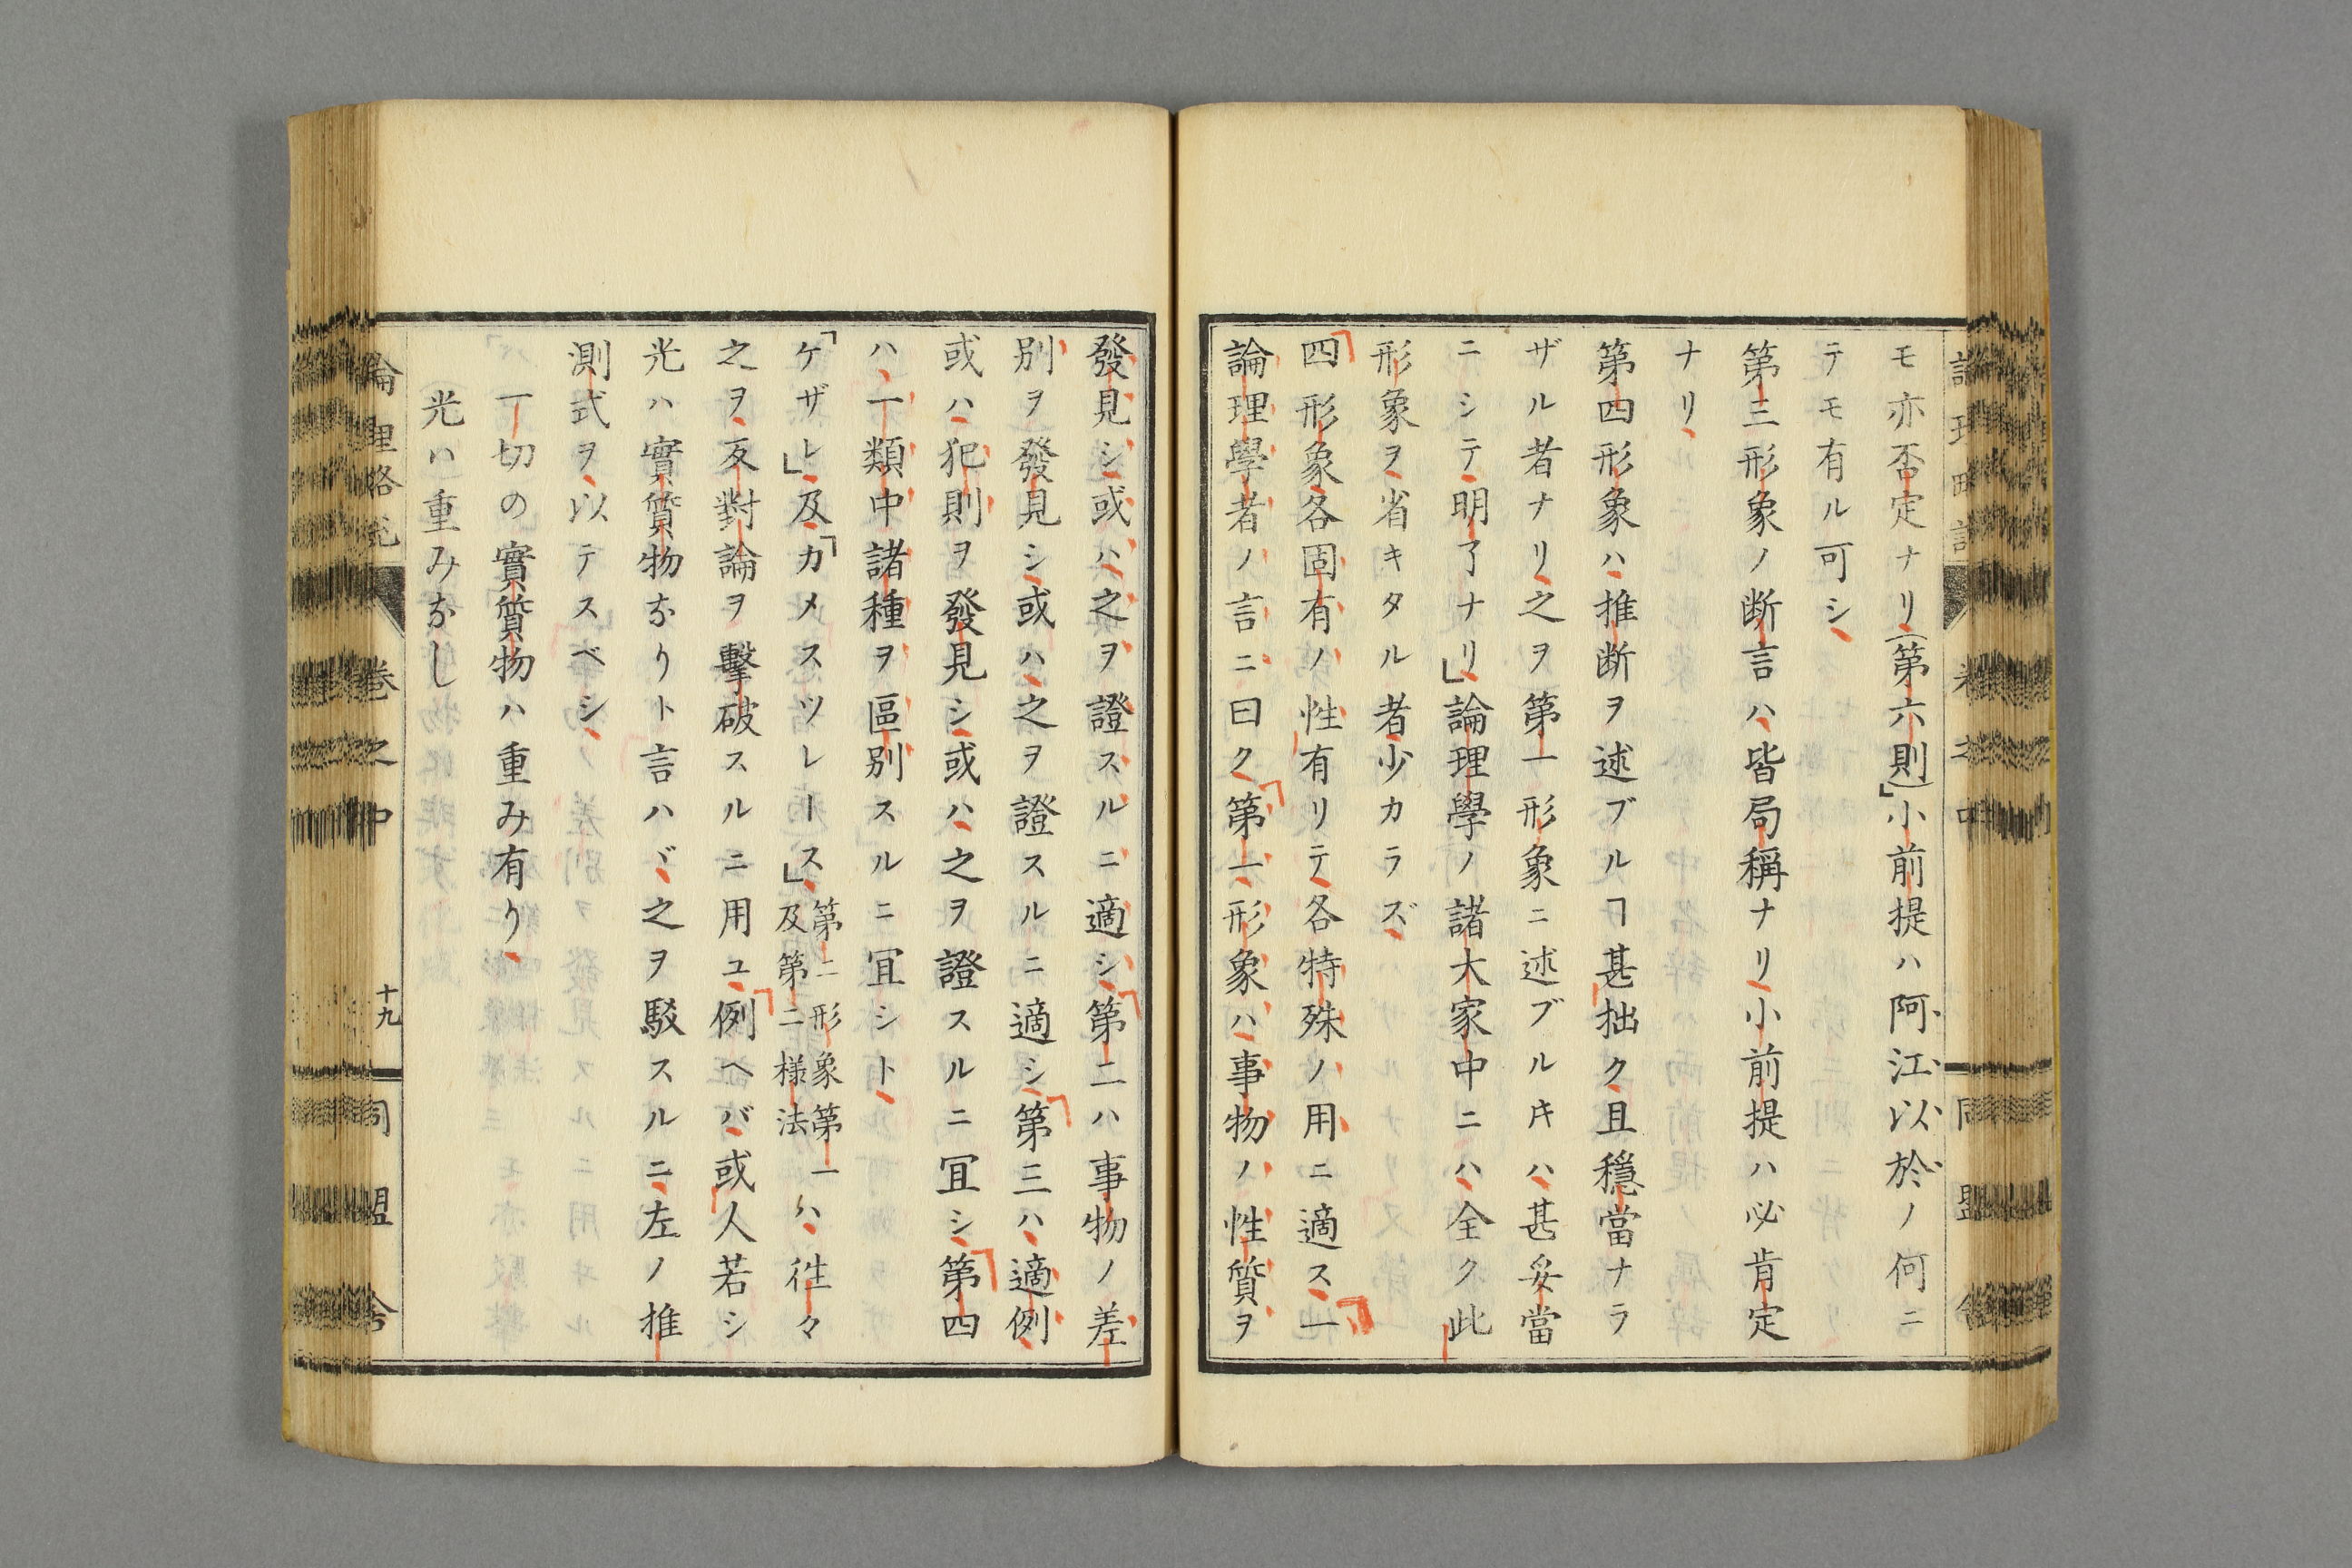 モ亦否定ナリ(第六則)」小前提ハ阿江以於ノ何ニ
テモ有ル可シ
第三形象ノ断言ハ皆局稱ナリ小前提ハ必肯定
ナリ
第四形象ハ推断ヲ述ブルヿ甚拙ク且穩當ナラ
ザル者ナリ之ヲ第一形象ニ述ブルキハ甚妥當
ニシテ明了ナリ」論理學ノ諸大家中ニハ全ク此
形象ヲ省キタル者少カラズ
四形象各固有ノ性有リテ各特殊ノ用ニ適ス一
論理學者ノ言ニ曰ク第一形象ハ事物ノ性質ヲ
發見シ或ハ之ヲ證スルニ適シ第二ハ事物ノ差
別ヲ發見シ或ハ之ヲ證スルニ適シ第三ハ適例
或ハ犯則ヲ發見シ或ハ之ヲ證スルニ冝シ第四
ハ一類中諸種ヲ區別スルニ冝シト
「ケザレ」及「カメスツレース」第二形象第一及第二樣法ハ徃々
之ヲ反對論ヲ擊破スルニ用ユ例ヘバ或人若シ
光ハ實質物なりト言ハヾ之ヲ駁スルニ左ノ推
測式ヲ以テスベシ
一切の實質物ハ重み有り
光ハ重みなし
論理略説
巻之中
十九
同盟舎